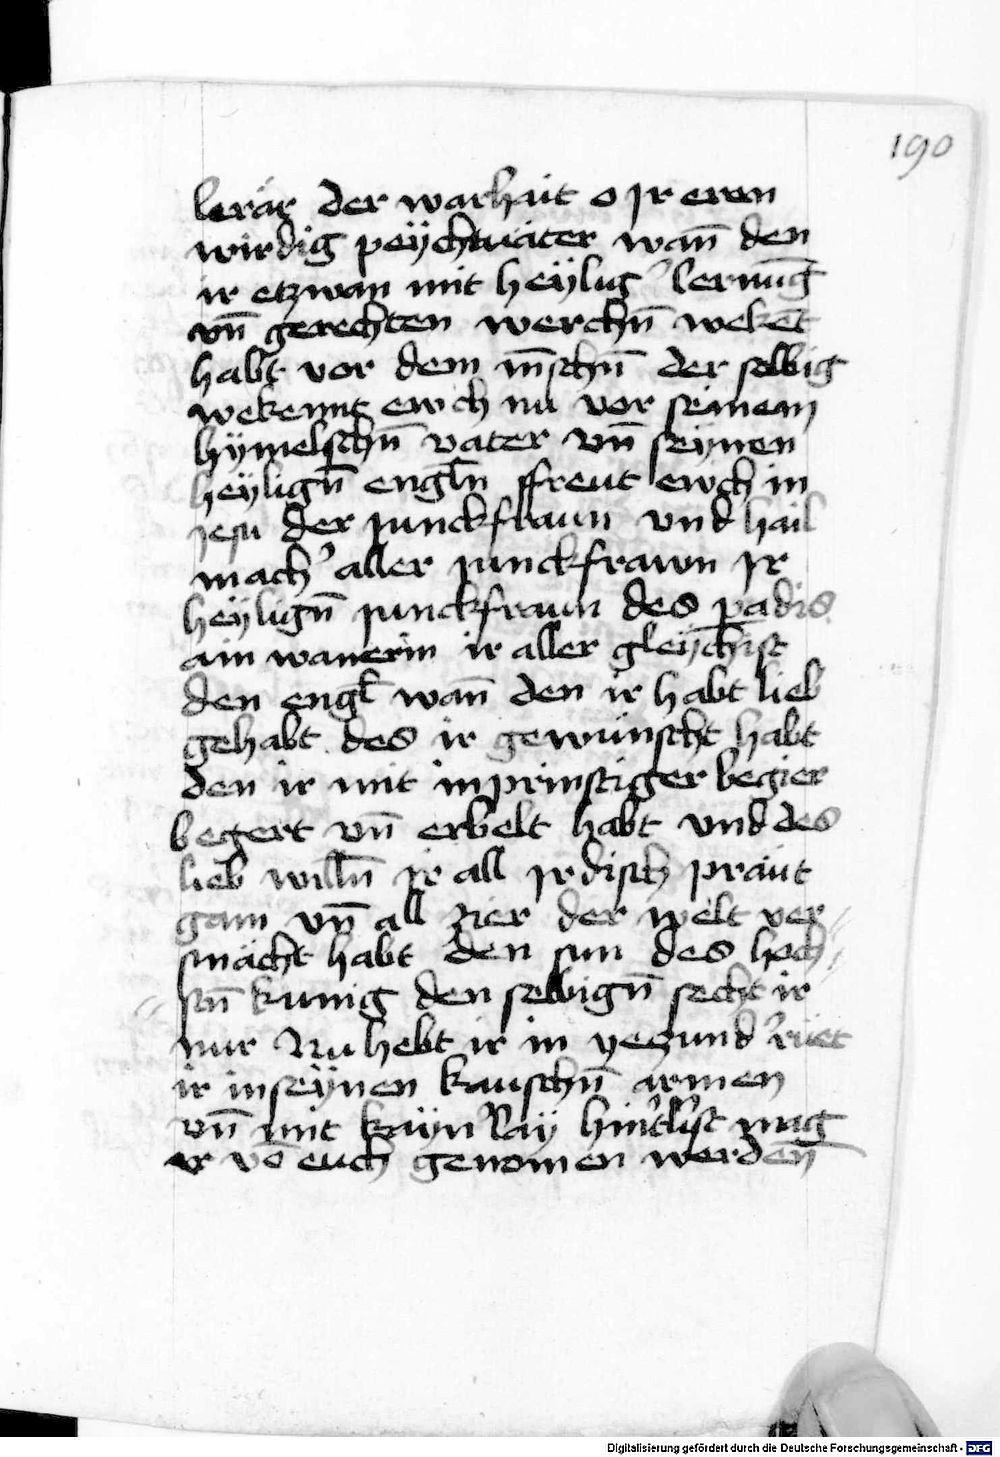 190
lerär der warhait o Jr eren
wirdig peÿchtuäter wan̄ den
ir etzwan mit heÿlig' lernūg
vn̄ gerechten werchn̄ wekēt
habt vor dem m̄schn̄ der selbig
wekennt ewch nu vor seinem
hÿmelschn̄ vater vn̄ seÿnen
heÿlign̄ engl̄n ffreut ewch in
jesu der junckfraun vnd hail
mach' aller junckfrawn Jr
heÿlign̄ junckfraun des padis
ain wanerin ir aller gleÿchist
den engl̄ wan̄ den ir habt lieb
gehabt des ir gewünscht habt
den ir mit inprinstiger begier
begert vn̄ erbelt habt vnd des
lieb willn̄ jr all jrdisch präut
gam vn̄ all zier der welt ver//
smächt habt den sun des hoch//
stn̄ kunig den selbign̄ secht ir
nur Nu hebt ir in yezund rüet
ir in seÿnen kauschn̄ armen
vn̄ mit kaÿn'laÿ hint'list mag
er vō euch genomen werden̄
Digitalisierung gefördert durch die Deutsche Forschungsgemeinschaft - DFG